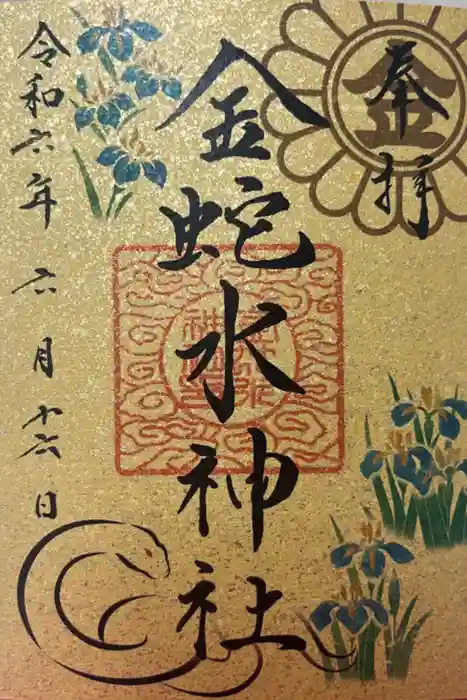 奉拝
金
金蛇水神社
令和六年六月十六日